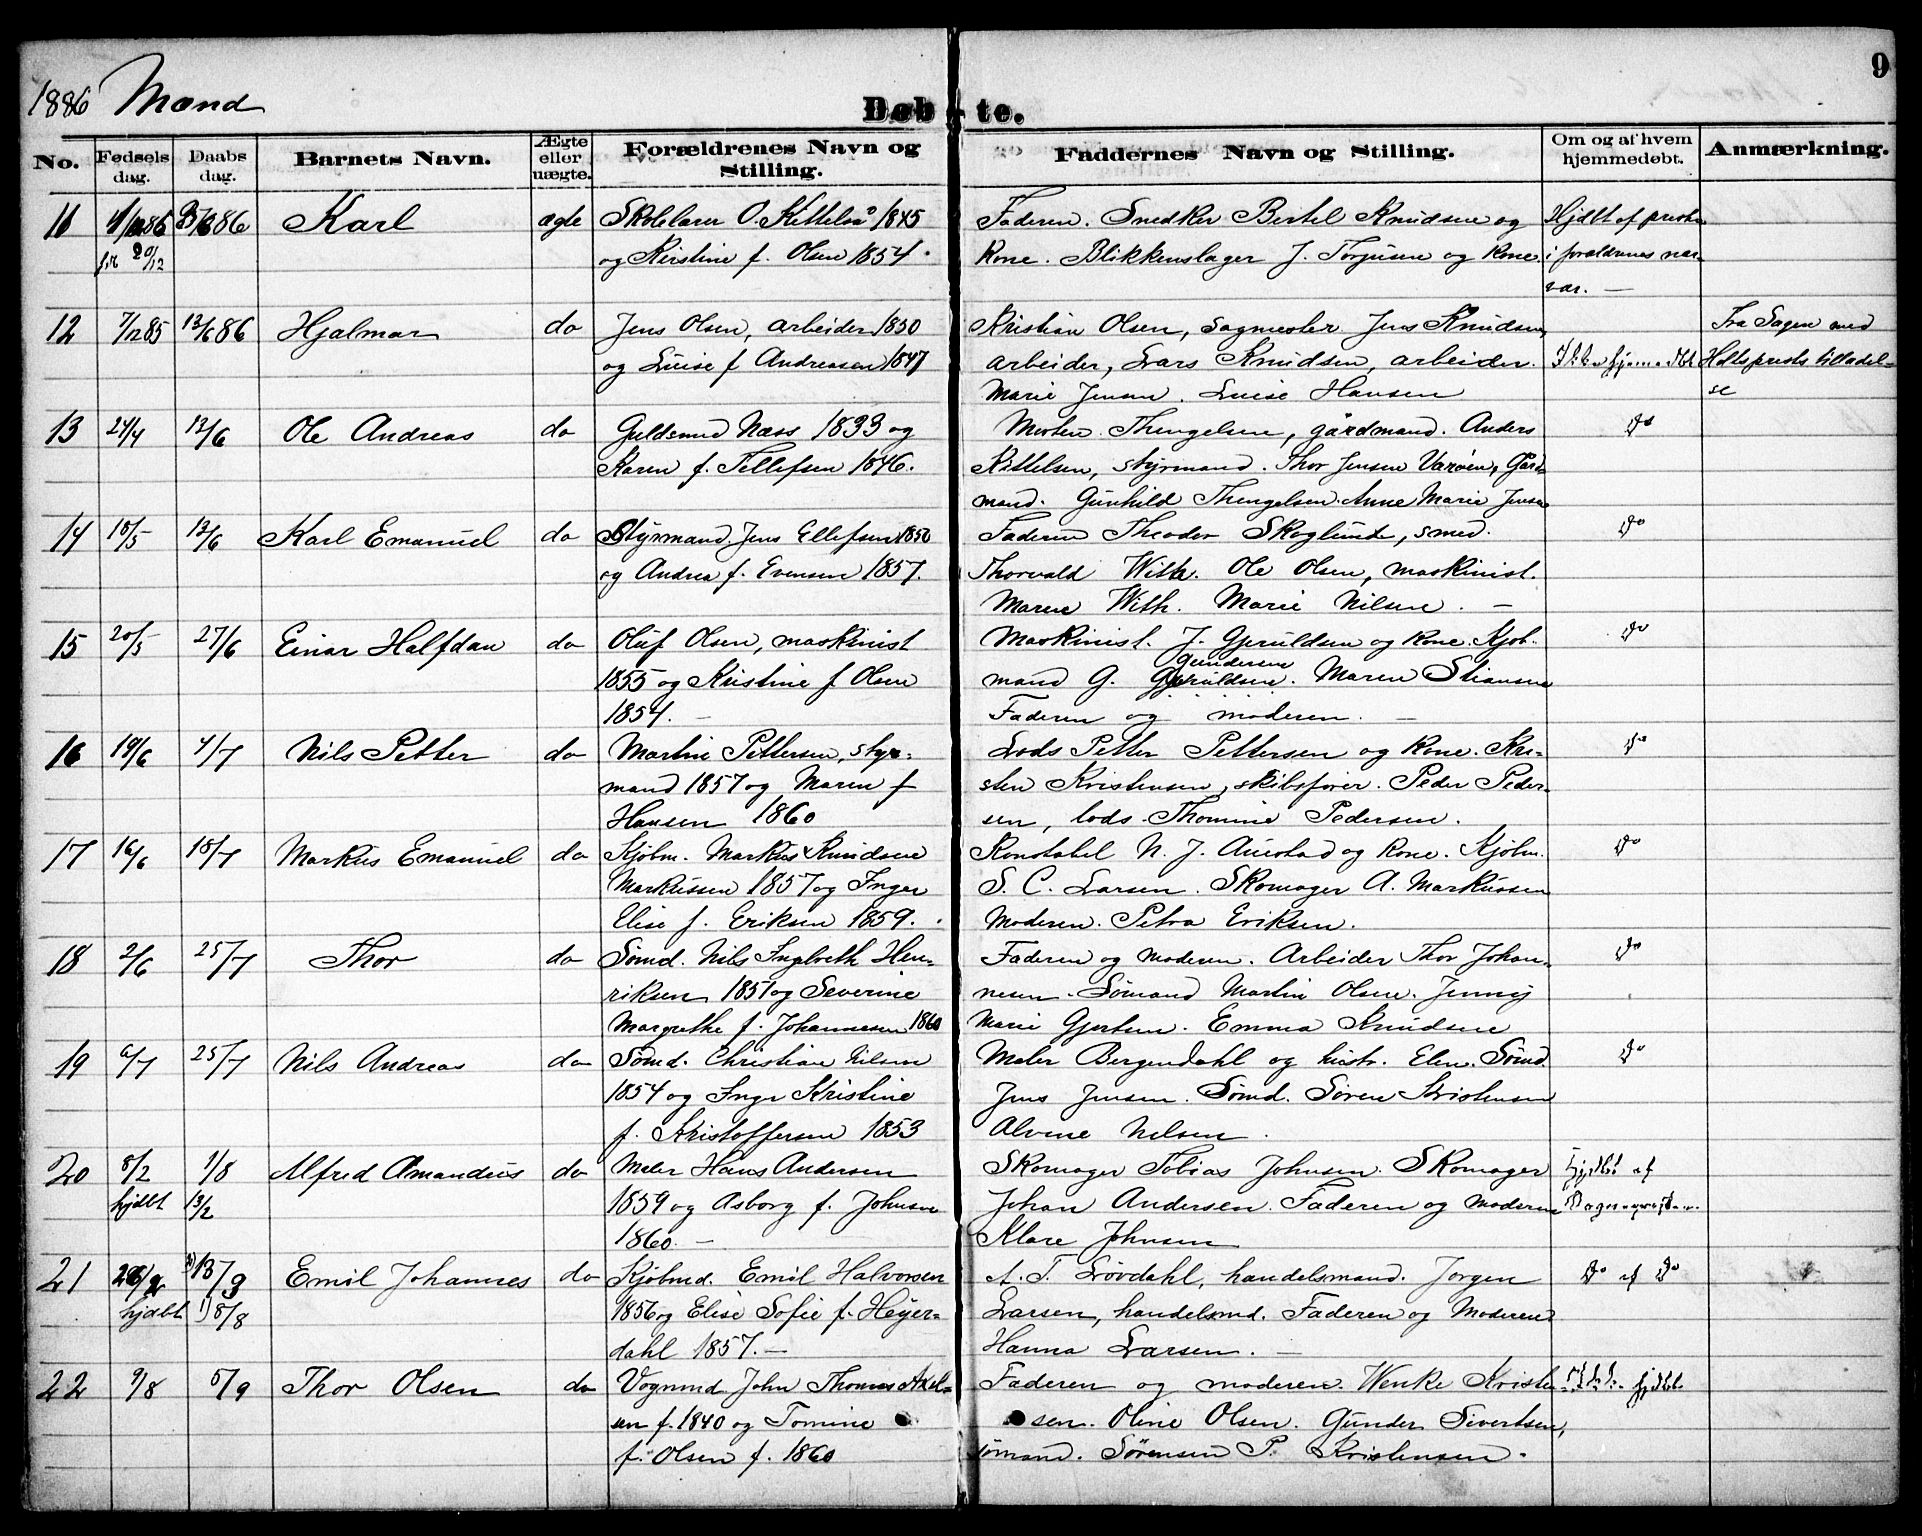 1886 Mænd
Døbte.
9
No. Fødselsdag. Daabsdag. Barnets Navn. Ægte eller uægte. Forældrenes Navn og Stilling. Faddernes Navn og Stilling. Om og af hvem hjemmedøbt. Anmærkning.
11 Karl ægte Skolelærer O. Kittelså 1845 Faderen. Snedker Bertel Knudsen og Hjdbt af presten
og Kirstine f. Olsen 1854. Kone. Blikkenslager J. Torjusen og Kone. i forældrenes nær-
vær. —
12 7/12 85 13/6 86 Hjalmar do Jens Olsen, arbeider 1850 Kristian Olsen, sagmester Jens Knudsen, Fra Sagen med
og Luise f Andreasen 1847 arbeider, Lars Knudsen, arbeider. Ikke hjemmedbt Holtsprests tilladel-
Marie Jensen. Luise Hansen se
13 24/4 13/6 Ole Andreas do Guldsmed Næss 1833 og Morten Thengelsen, gårdmand. Anders Do
Karen f. Tellefsen 1846. Kittelsen, styrmand. Thor Jensen Varøen, Gård-
mand. Gunhild Thengelsen. Anne Marie Jensen
14 18/5 13/6 Karl Emanuel do Styrmand Jens Ellefsen 1850 Faderen Theodor Skoglund, smed. Do
og Andrea f. Evensen 1857. Thorvald With. Ole Olsen, maskinist.
Maren With. Marie Nilsen. —
15 20/5 27/6 Einar Halfdan do Oluf Olsen, maskinist Maskinist J. Gjeruldsen og Kone. Kjøb- Do
1855 og Kristine f Olsen mand G. Gundersen Gjeruldsen. Maren Stiansen
1854. — Faderen og moderen. —
16 19/6 4/7 Nils Petter do Martin Pettersen, styr- Lods Petter Pettersen og Kone. Kri- Do
mand 1857 og Maren f sten Kristensen, skibsfører. Peder Peder-
Hansen 1860 sen, lods. Thomine Pedersen.
17 16/6 18/7 Markus Emanuel do Kjøbm. Markus Knudsen Konstabel N. J. Austad og Kone. Kjøbm. Do
Markussen 1857 og Inger S. C. Larsen. Skomager A. Markussen
Elise f. Eriksen 1859. Moderen. Petra Eriksen.
18 2/6 25/7 Thor do Sømd. Nils Ingbreth Hen- Faderen og moderen. Arbeider Thor Johan- Do
riksen 1851 og Severine nesen. Sømand Martin Olsen. Jenny
Margrethe f. Johannesen 1860 Marie Gjertsen. Emma Knudsen
19 6/7 25/7 Nils Andreas do Sømd. Christian Nilsen Maler Bergendahl og hustr. Elen. Sømd. Do
1854 og Inger Kristine Jens Jensen. Sømd. Søren Kristensen
f. Kristoffersen 1853 Alvine Nilsen.
20 8/2 1/8 Alfred Amandus do Maler Hans Andersen Skomager Tobias Johnsen. Skomager Hjdbt af
hjdbt 13/2 1859 og Asborg f. Johnsen Johan Andersen. Faderen og Moderen
1860. — Klare Johnsen
21 Emil Johannes do Kjøbmd. Emil Halvorsen A. T. Løvdahl, handelsmand. Jørgen Do af Do
hjdbt 1) 8/8 1856 og Elise Sofie f. Heyer- Larsen, handelsmd. Faderen og Moderen
dahl 1857. — Hanna Larsen. —
22 9/8 5/9 Thor Olsen do Vognmd John Thomas Axel- Faderen og moderen. Wenke Kristen- Ikke hjdbt
sen f. 1840 og Tomine sen. Oline Olsen. Gunder Sivertsen,
f. Olsen f. 1860 sømand. Sørensen P. Kristensen.